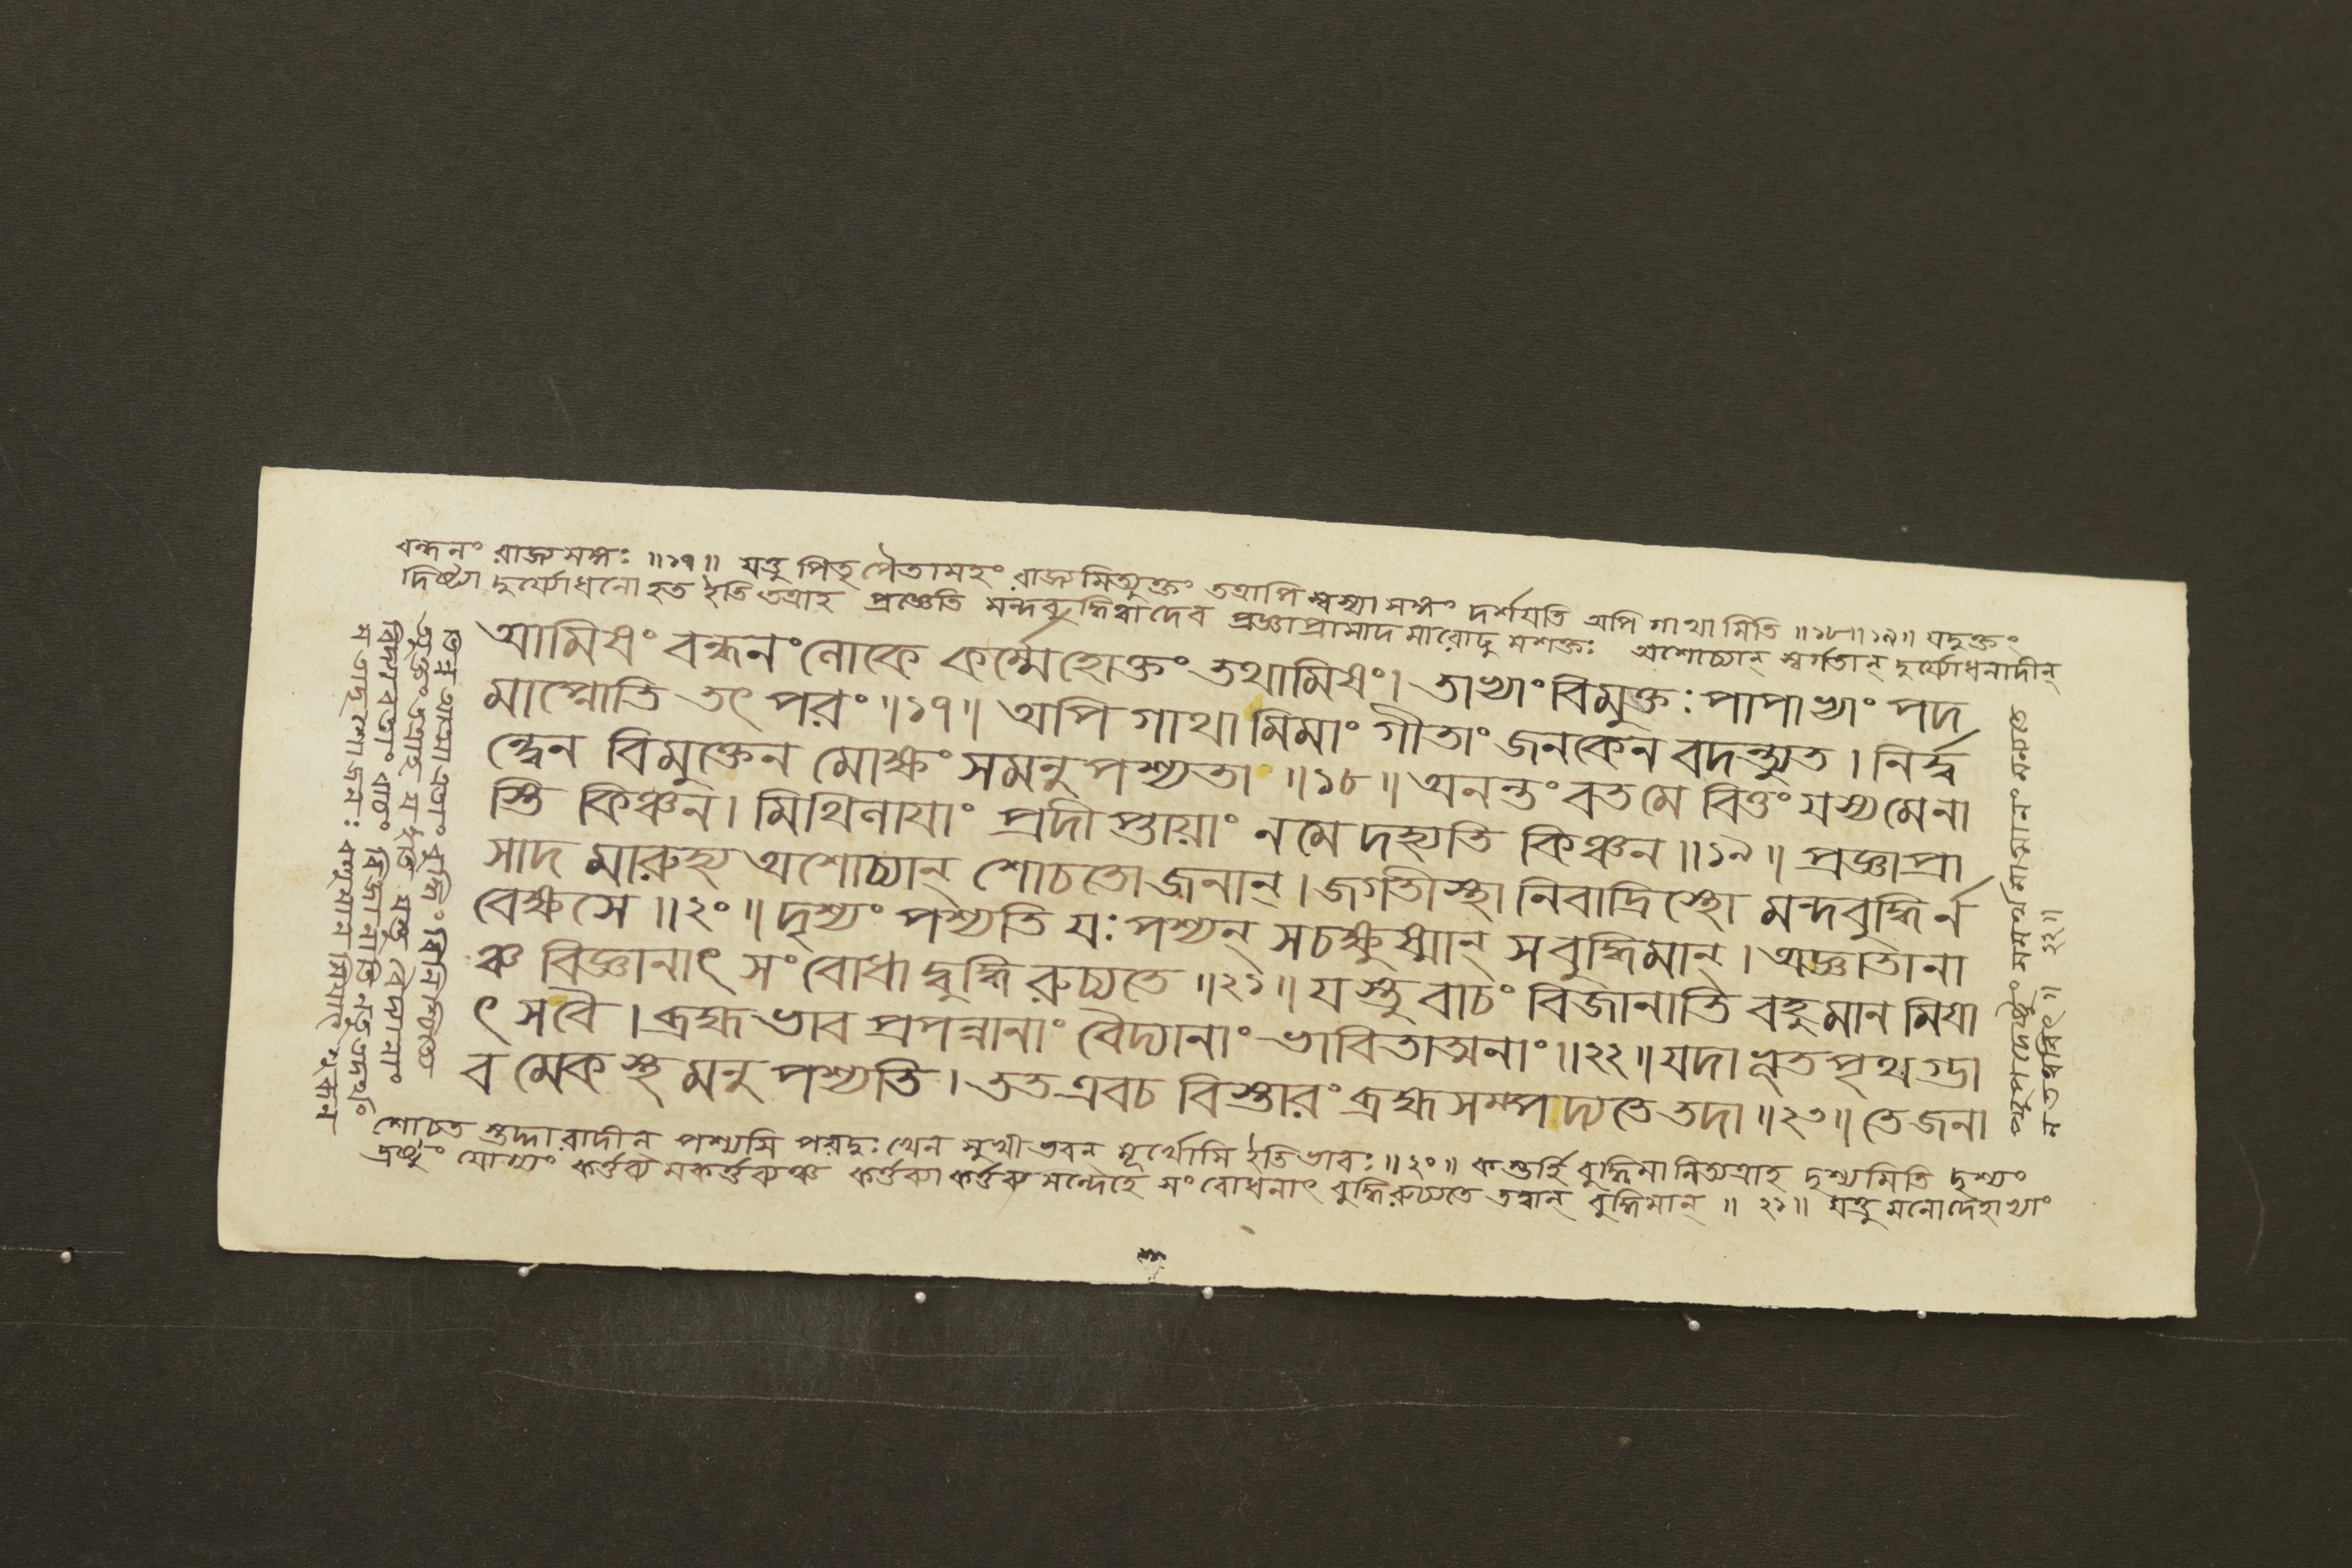 বন্ধনং রাজ্যমঙ্গঃ ॥১৭॥ যত্তু পিতৃপৈতামহং রাজ্যমিত্যুক্তং তত্রাপি স্বস্যাসঙ্গং দর্শয়তি অপি গাথামিতি ॥১৮॥১৯॥ যদুক্তং
দিষ্ট্যা দুর্য্যোধনো হত ইতি তত্রাহ প্রজ্ঞেতি মন্দবুদ্ধিত্বাদেব প্রজ্ঞাপ্রাসাদমারোঢুমশক্তঃ অশোচ্যান্ স্বর্গতান্ দুর্য্যোধনাদীন্
আমিষং বন্ধনং লোকে কর্ম্মেহোক্তং তথামিষং। তাভ্যাং বিমুক্তঃ পাপাভ্যাং পদ
মাপ্নোতি তৎ পরং ॥১৭॥ অপি গাথামিমাং গীতাং জনকেন বদন্ত্যুত । নির্দ্ব
ন্দ্বেন বিমুক্তেন মোক্ষং সমনুপশ্যতা ॥১৮॥ অনন্তং বত মে বিত্তং যস্য মে না
স্তি কিঞ্চন। মিথিলায়াং প্রদীপ্তায়াং ন মে দহ্যতি কিঞ্চন ॥১৯॥ প্রজ্ঞাপ্রা
সাদমারুহ্য অশোচ্যান্ শোচতো জনান্ । জগতীস্থানিবাদ্রিস্থো মন্দবুদ্ধির্ন
বেক্ষসে ॥২০॥ দৃশ্যং পশ্যতি যঃ পশ্যন্ স চক্ষুষ্মান্ স বুদ্ধিমান্ । অজ্ঞাতানা
ঞ্চ বিজ্ঞানাৎ সংবোধাদ্বুদ্ধিরুচ্যতে ॥২১॥ যস্তু বাচং বিজানাতি বহুমানমিয়া
ৎ স বৈ । ব্রহ্মভাবপ্রপন্নানাং বৈদ্যানাং ভাবিতাত্মনাং ॥২২॥ যদা ভূতপৃথগ্ভা
বমেকস্থমনুপশ্যতি । তত এব চ বিস্তারং ব্রহ্ম সম্পদ্যতে তদা ॥২৩॥ তে জনা
শোচত স্তদ্দারাদীন্ পশ্যসি পরদুঃখেন সুখী ভবন মূর্খোসি ইতি ভাবঃ ॥২০॥ কস্তর্হি বুদ্ধিমানিত্যত্রাহ দৃশ্যমিতি দৃশ্যং
দ্রষ্টুং যোগ্যং কর্ত্তব্যমকর্ত্তব্যঞ্চ কর্ত্তব্যাকর্ত্তব্যসন্দেহে সংবোধনাৎ বুদ্ধিরুচ্যতে তদ্বান্ বুদ্ধিমান্ ॥ ২১॥ যত্তু মনোদেহাভ্যাং
বিদ্যাবতাং বাচং বিজানাতি
ম তত্ত্ববিৎ॥ ২২॥